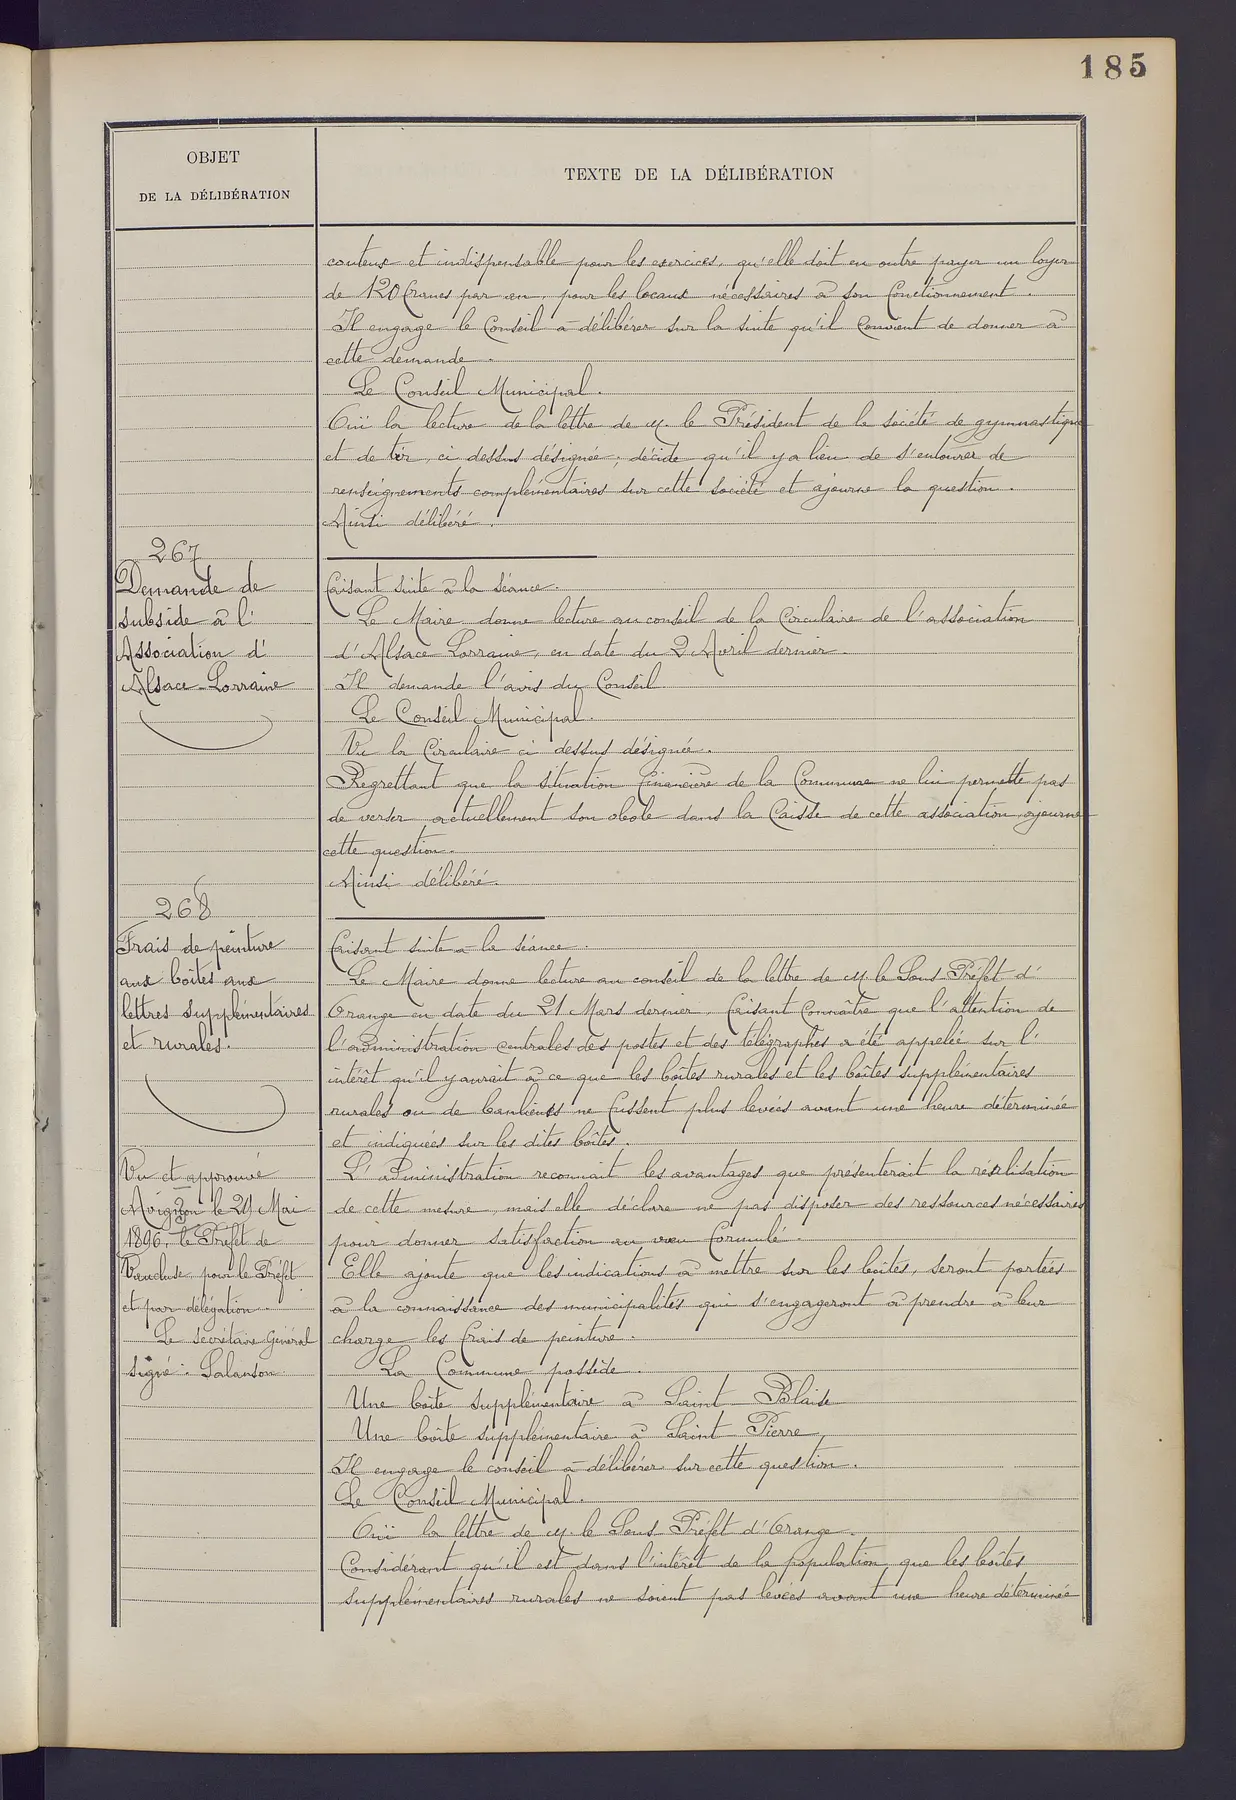 185
OBJET
DE LA DÉLIBÉRATION
TEXTE DE LA DÉLIBÉRATION
couteux et indispensable pour les exercices, qu'elle doit en outre payer un loyer
de 120 francs par an, pour les locaux nécessaires à son fonctionnement.
Il engage le Conseil à délibérer sur la suite qu'il convient de donner à
cette demande.
Le Conseil Municipal.
Ouï la lecture de la lettre de M. le Président de la société de gymnastique
et de tir, ci dessus désignée, décide qu'il y a lieu de s'entourer de
renseignements complémentaires sur cette société et ajourne la question.
Ainsi délibéré.
267
Demande de
subside à l'
Association d'
Alsace-Lorraine
Faisant suite à la séance.
Le Maire donne lecture au conseil de la Circulaire de l'association
d'Alsace Lorraine, en date du 2 Avril dernier.
Il demande l'avis du Conseil
Le Conseil Municipal.
Vu la Circulaire ci dessus désignée.
Regrettant que la situation financière de la Commune ne lui permette pas
de verser actuellement son obole dans la Caisse de cette association, ajourne
cette question.
Ainsi délibéré.
268
Frais de peinture
aux boîtes aux
lettres supplémentaires
et rurales.
Vu et approuvé
Avignon le 29 Mai
1896, le Préfet de
Vaucluse, pour le Préfet
et par délégation.
Le Secrétaire Général
signé: Salanson
Faisant suite à la séance.
Le Maire donne lecture au conseil de la lettre de M. le Sous-Préfet d'
Orange en date du 21 Mars dernier, faisant connaître que l'attention de
l'administration centrales des postes et des télégraphes a été appelée sur l'
intérêt qu'il y aurait à ce que les boîtes rurales et les boîtes supplémentaires
rurales ou de banlieues ne fussent plus levées avant une heure déterminée
et indiquées sur les dites boîtes.
L'administration reconnait les avantages que présenterait la réalisation
de cette mesure, mais elle déclare ne pas disposer des ressources nécessaires
pour donner satisfaction au vœu formulé.
Elle ajoute que les indications à mettre sur les boîtes, seront portées
à la connaissance des municipalités qui s'engageront à prendre à leur
charge les frais de peinture.
La Commune possède.
Une boîte supplémentaire à Saint Blaise
Une boîte supplémentaire à Saint Pierre,
Il engage le conseil à délibérer sur cette question.
Le Conseil Municipal.
Ouï la lettre de M. le Sous Préfet d'Orange.
Considérant qu'il est dans l'intérêt de la population, que les boîtes
supplémentaires rurales ne soient pas levées avant une heure déterminée